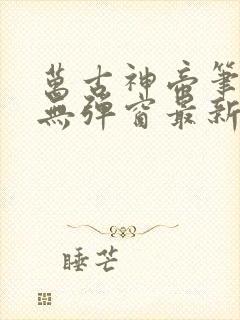 萬古神帝筆
無彈窗最新
睡芒